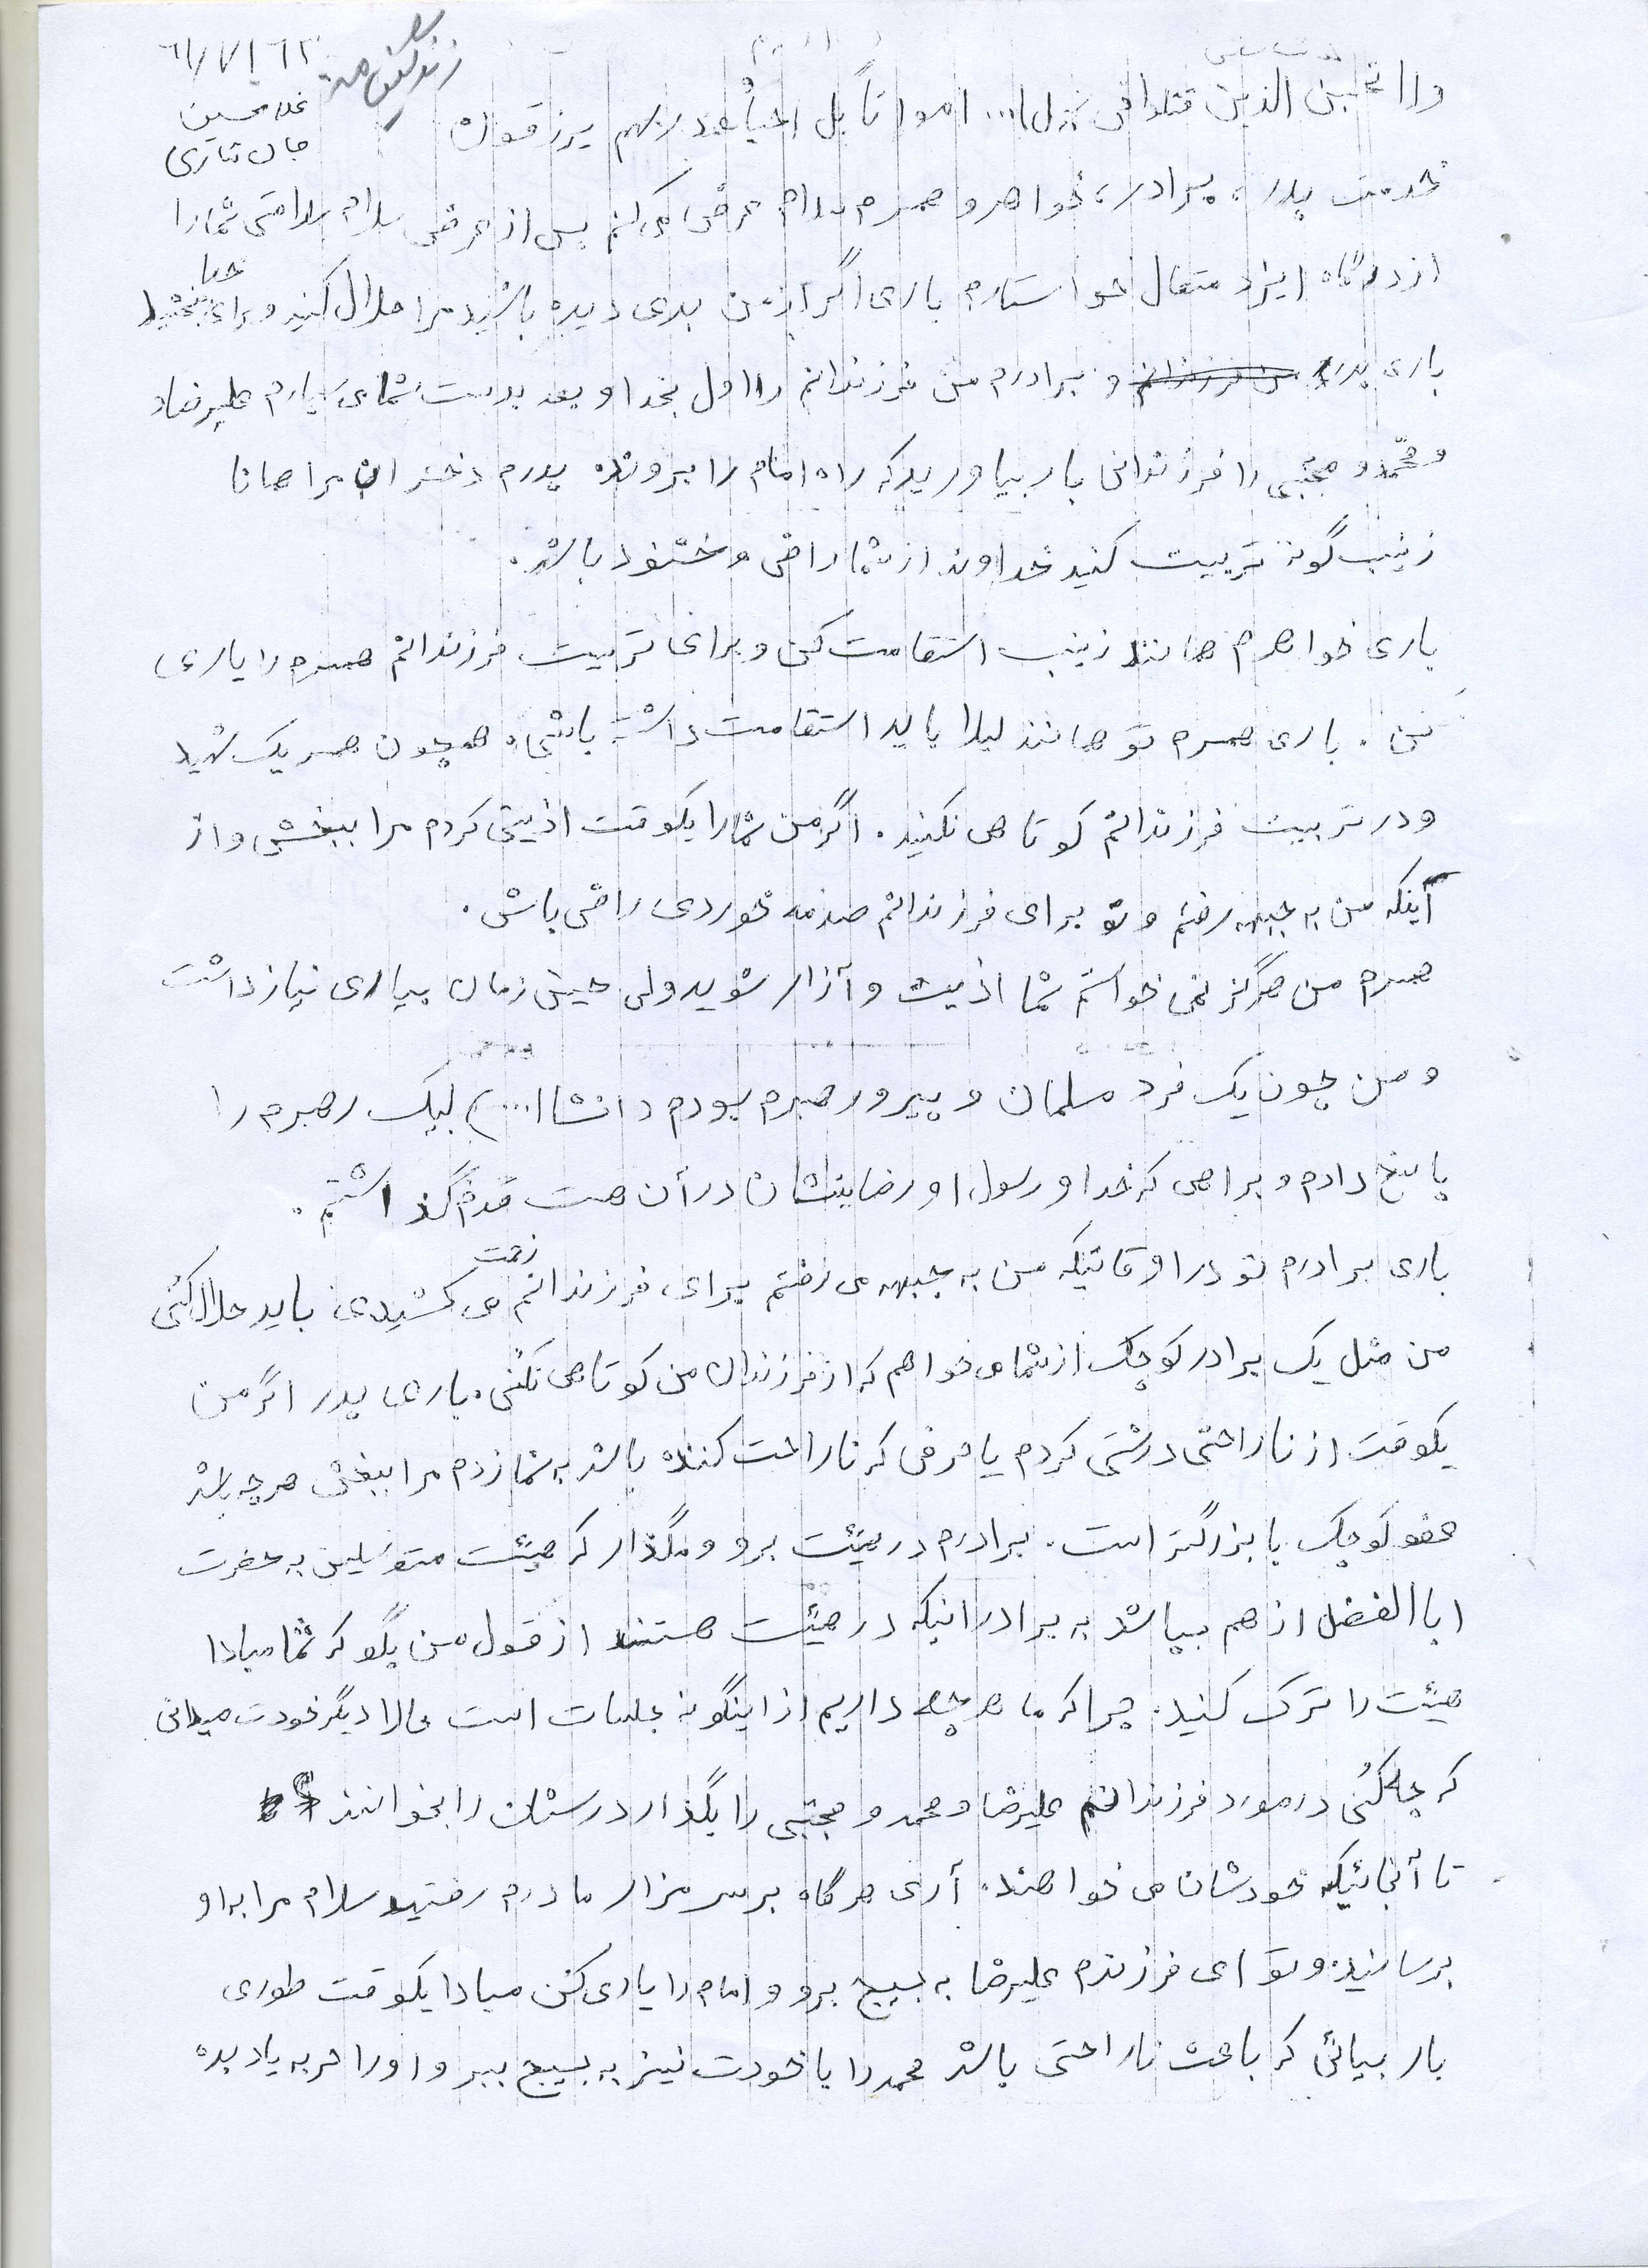 زندگینامه
غلامحسین
جان نثاری
ولا تحسبن الذین قتلوا فی سبیل ا... امواتاً بل احیاءٌ عند ربهم یرزقون
خدمت پدر، برادر، خواهر و همسرم سلام عرض می کنم پس از عرض سلام سلامتی شما را
از درگاه ایزد متعال خواستارم باری اگر از من بدی دیده باشید مرا حلال کنید و مرا ببخشید
باری پدرم و برادرم من فرزندانم را اول بخدا و بعد بدست شما می سپارم علیرضا
و محمد و مجتبی را فرزندانی بار بیاورید که راه امام را بروند. پدرم دختران مرا همانا
زینب گونه تربیت کنید خداوند از شما راضی و خشنود باشد.
باری خواهرم همانند زینب استقامت کن و برای تربیت فرزندانم همسرم را یاری
کن. باری همسرم تو همانند لیلا باید استقامت داشته باشی همچون همسر یک شهید
و در تربیت فرزندانم کوتاهی نکنید. اگر من شما را یکوقت اذیتی کردم مرا ببخشی و از
آینکه من به جبهه رفتم و تو برای فرزندانم صدمه خوردی راضی باش.
همسرم من هرگز نمی خواستم شما اذیت و آزار شوید ولی حیف زمان بیاری نیاز داشت
و من چون یک فرد مسلمان و پیرو رهبرم بودم (انشاا...) لبیک رهبرم را
پاسخ دادم و براهی که خدا و رسول او رضایتشان در آن هست قدم گذاشتم.
باری برادرم تو در اوقاتیکه من به جبهه می رفتم برای فرزندانم زحمت می کشیدی باید حلال کنی
من مثل یک برادر کوچک از شما می خواهم که از فرزندان من کوتاهی نکنی. باری پدر اگر من
یکوقت از ناراحتی درشتی کردم یا حرفی که ناراحت کننده باشد به شما زدم مرا ببخش هر چه باشد
عفو کوچک با بزرگتر است. برادرم در هیئت برو و نگذار که هیئت متوسلین به حضرت
اباالفضل از هم بپاشد به برادرانیکه در هیئت هستند از قول من بگو که شما مبادا
هیئت را ترک کنید. چرا که ما هر چه داریم از اینگونه جلسات است حالا دیگر خودت میدانی
که چه کنی در مورد فرزندانم علیرضا و محمد و مجتبی را بگذار درسشان را بخوانند
تا آنجائیکه خودشان می خواهند. آری هرگاه بر سر مزار مادرم رفتید سلام مرا به او
برسانید. و تو ای فرزندم علیرضا به بسیج برو و امام را یاری کن مبادا یکوقت طوری
بار بیائی که باعث ناراحتی باشد محمد را با خودت نیز به بسیج ببر و او را حربه یاد بده